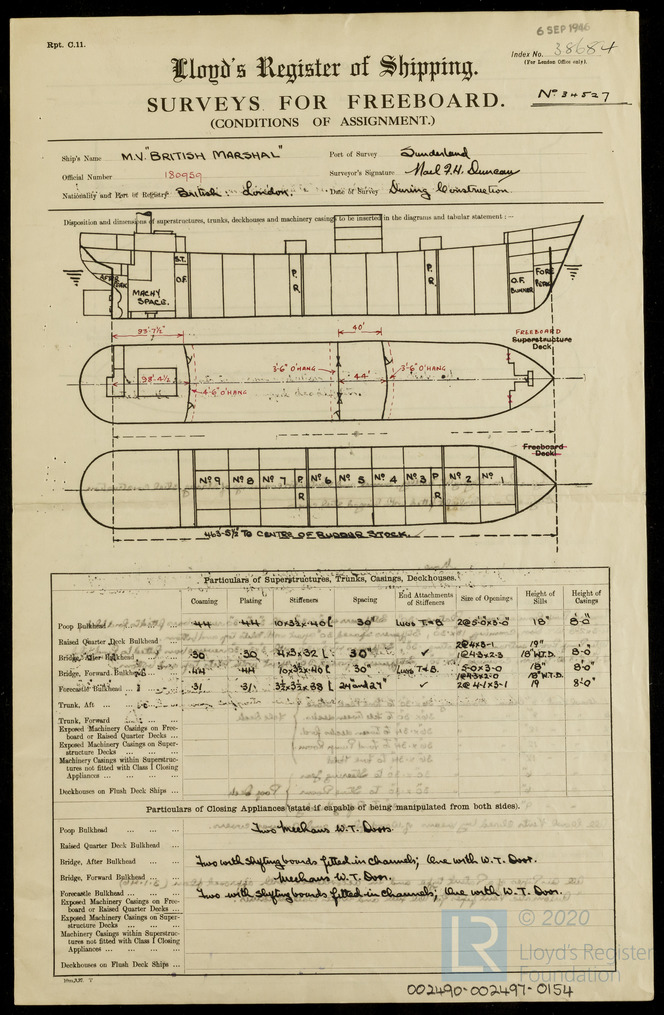 6 SEP 1946
Rpt. C.11.
Index No. 38684
(For London Office only).
Lloyd's Register of Shipping.
No 34527
SURVEYS FOR FREEBOARD.
(CONDITIONS OF ASSIGNMENT.)
Ship's Name M.V. "BRITISH MARSHAL" Port of Survey Sunderland
Official Number 180959 Surveyor's Signature
Nationality and Port of Registry British: London. Date of Survey During Construction.
Disposition and dimensions of superstructures, trunks, deckhouses and machinery casings to be inserted in the diagrams and tabular statement:—
S.T.
AFTER PEAK
MACHY SPACE.
O.F.
P.R.
P.R.
O.F. BUNKER
FORE PEAK
93'-7½"
40'
FREEBOARD
Superstructure
Deck
3'-6" O'HANG
3'-6" O'HANG
98'-4½
44'
4'-6" O'HANG
Freeboard
Deck
No 9 No 8 No 7 P.R. No 6 No 5 No 4 No 3 P.R. No 2 No 1
463-5½" TO CENTER OF RUDDER STOCK.
Particulars of Superstructures, Trunks, Casings, Deckhouses.
Coaming Plating Stiffeners Spacing End Attachments of Stiffeners Size of Openings Height of Sills Height of Casings
Poop Bulkhead .44 .44 10x3½x.40 30" Lugs T.&B. 2@5-0x3-0 18" 8-0"
Raised Quarter Deck Bulkhead
Bridge, After Bulkhead .30 .30 4x3x.32 30" ✓ 2@4x3-1 1@4-3x2-3 19" 18" W.T.D. 8-0"
Bridge, Forward Bulkhead .44 .44 10x3½x.40 30" Lugs T&B. 5-0x3-0 18" 8'0"
Forecastle Bulkhead .31 .31 3½x3½x.38 24" and 27" ✓ 1@4-3x2-0 2@4-1x3-1 18" W.T.D. 19 8'0"
Trunk, Aft
Trunk, Forward
Exposed Machinery Casings on Freeboard or Raised Quarter Decks
Exposed Machinery Casings on Superstructure Decks
Machinery Casings within Superstructures not fitted with Class I Closing Appliances
Deckhouses on Flush Deck Ships
Particulars of Closing Appliances (state if capable of being manipulated from both sides).
Poop Bulkhead Two Mechans W.T. Doors.
Raised Quarter Deck Bulkhead
Bridge, After Bulkhead Two with shifting boards fitted in channels; One with W.T. Door.
Bridge, Forward Bulkhead Mechans W.T. Door.
Forecastle Bulkhead Two with shifting boards fitted in channels; One with W.T. Door.
Exposed Machinery Casings on Freeboard or Raised Quarter Decks
Exposed Machinery Casings on Superstructure Decks
Machinery Casings within Superstructures not fitted with Class I Closing Appliances
Deckhouses on Flush Deck Ships
© 2020
LR
Lloyd's Register
Foundation
002490-002497-0154